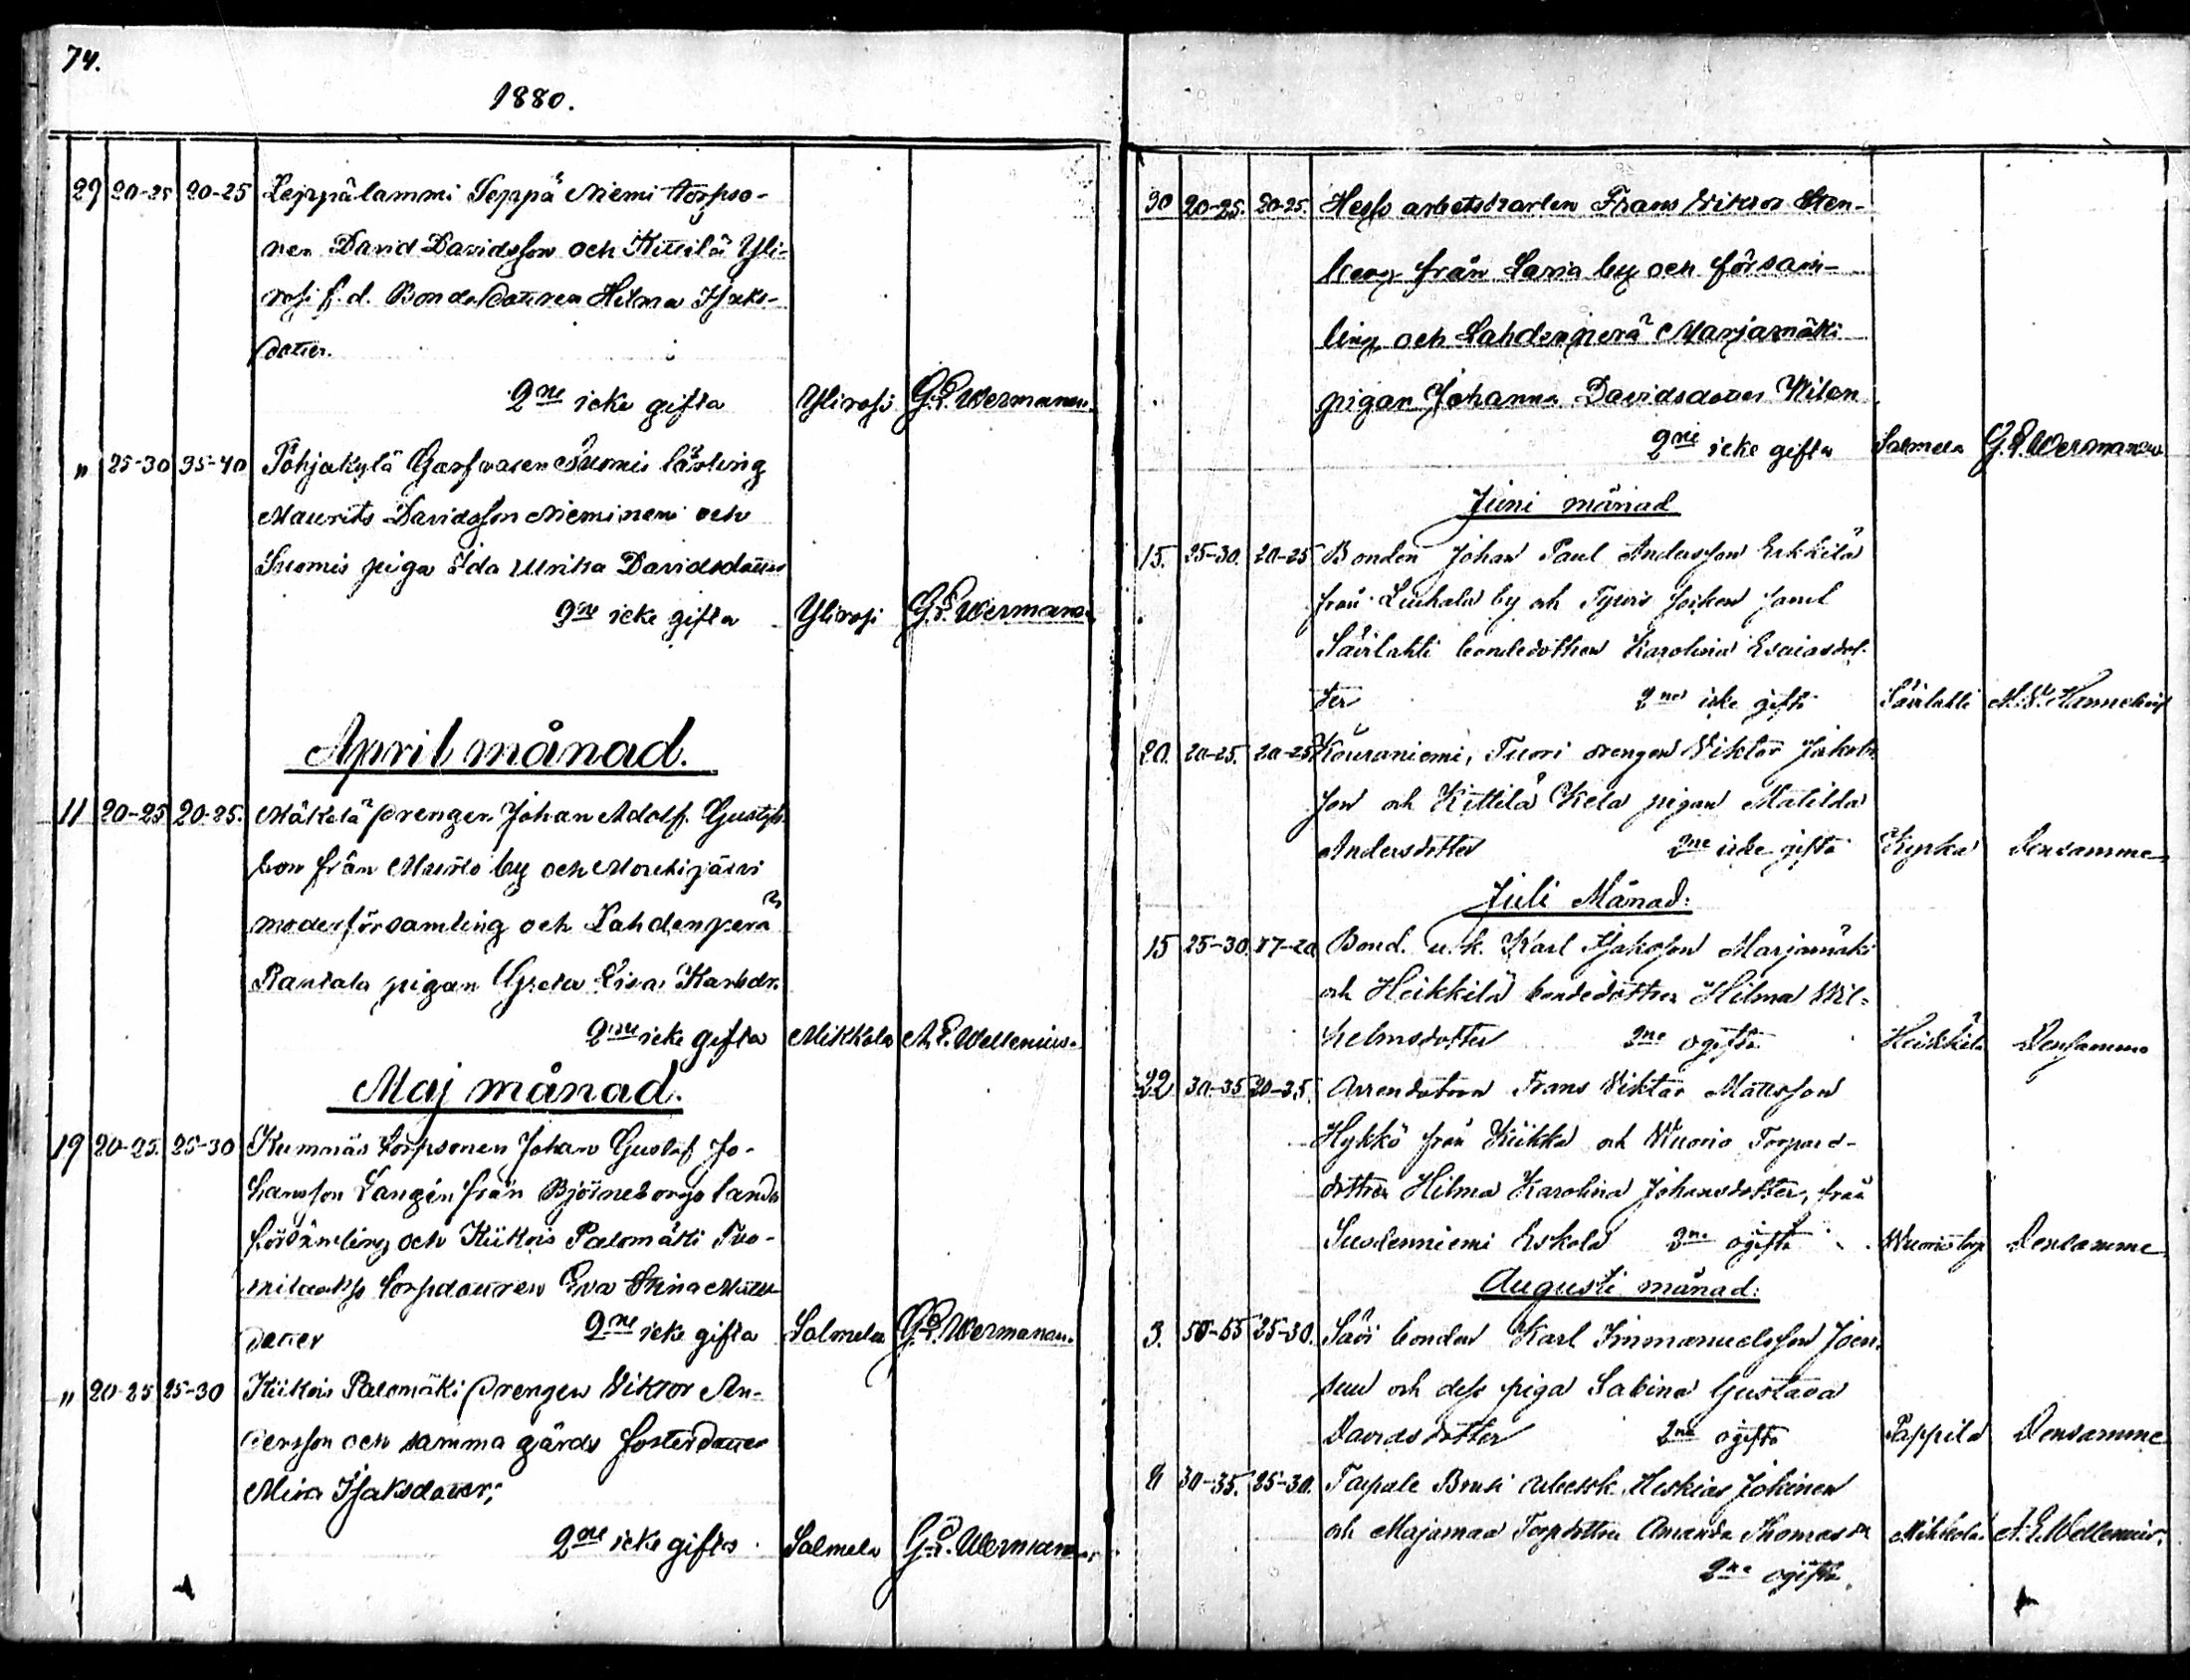 74.
1880.
29 20-25 20-25 Leppälammi Seppä Niemi torpso-
nen David Davidsson och Kittilä Yli-
rosi f.d. Bondedottren Hilma Isaks-
dotter.
2ne icke gifta Ylirosi G.E. Wermanen.
" 25-30 35-40 Pohjakylä Garfvaren Suomis lärling
Maurits Davidsson Nieminen och
Suomis piga Ida Ulrika Davidsdotter
2ne icke gifta Ylirosi G.E. Wermanen
April månad.
11 20-25 20-25. Mäkelä drengen Johan Adolf Gustafs-
son från Murto by och Mouhijärvi
moderförsamling och Lahdenperä
Rantala pigan Greta Lisa Karlsdr.
2ne icke gifta Mikkola A.E. Wellenius.
Maj månad.
19 20-25. 25-30 Kumnäs torpsonen Johan Gustaf Jo-
hansson Langén från Björneborgs lands
församling och Kiikois Palomäki Tuo-
torpdottren Eva Stina Matts-
dotter 2ne icke gifta Salmela G.E. Wermanen.
" 20-25 25-30 Kiikois Palomäki drengen Viktor An-
dersson och samma gårds fosterdotter
Miina Isaksdotter;
2ne icke gifta. Salmela G.E. Wermanen
30 20-25. 20-25. Hess arbetskarlen Frans Viktor Sten-
berg från Lavia by och försam-
ling och Lahdenperä Marjamäki
pigan Johanna Davidsdotter Wilen
2ne icke gifta Salmela G.E. Wermanen
Juni månad
15. 25-30. 20-25 Bonden Johan Paul Andersson Erkkilä
från Liuhala by och Tyrvis socken samt
Säirlahti bondedottren Karolina Esaiasdot-
ter 2ne icke gifta Säirlahti
20. 20-25. 20-25 Kouraniemi, Tuori drengen Viktor Jakobs-
son och Kittilä Kela pigan Matilda
Andersdotter 2ne icke gifta Kyrka Densamme
Juli Månad:
15 25-30. 17-20 Bond. u.k. Karl Isaksson Marjamäki
och Heikkilä bondedottren Hilma Wil-
helmsdotter 2ne ogifta Heikkilä Densamme
22 30-35 20-25. Arrendatorn Frans Viktor Mattsson
Hykkö från Kiikka och Wuorio Torpare-
dottren Hilma Karolina Johansdotter, från
Suodenniemi Eskola 2ne ogifta Wuorio torp Densamme
Augusti månad:
3. 50-55 25-30. Savi bonden Karl Immanuelsson Joen-
suu och dess piga Sabina Gustava
Davidsdotter 2ne ogifta Pappila Densamme
" 30-35. 25-30. Taipale arbetsk. Heskias Jokinen
och Majamaa Torpdottren Amanda Thomasdr Mikkola A.E. Wellenius.
2ne ogifta.